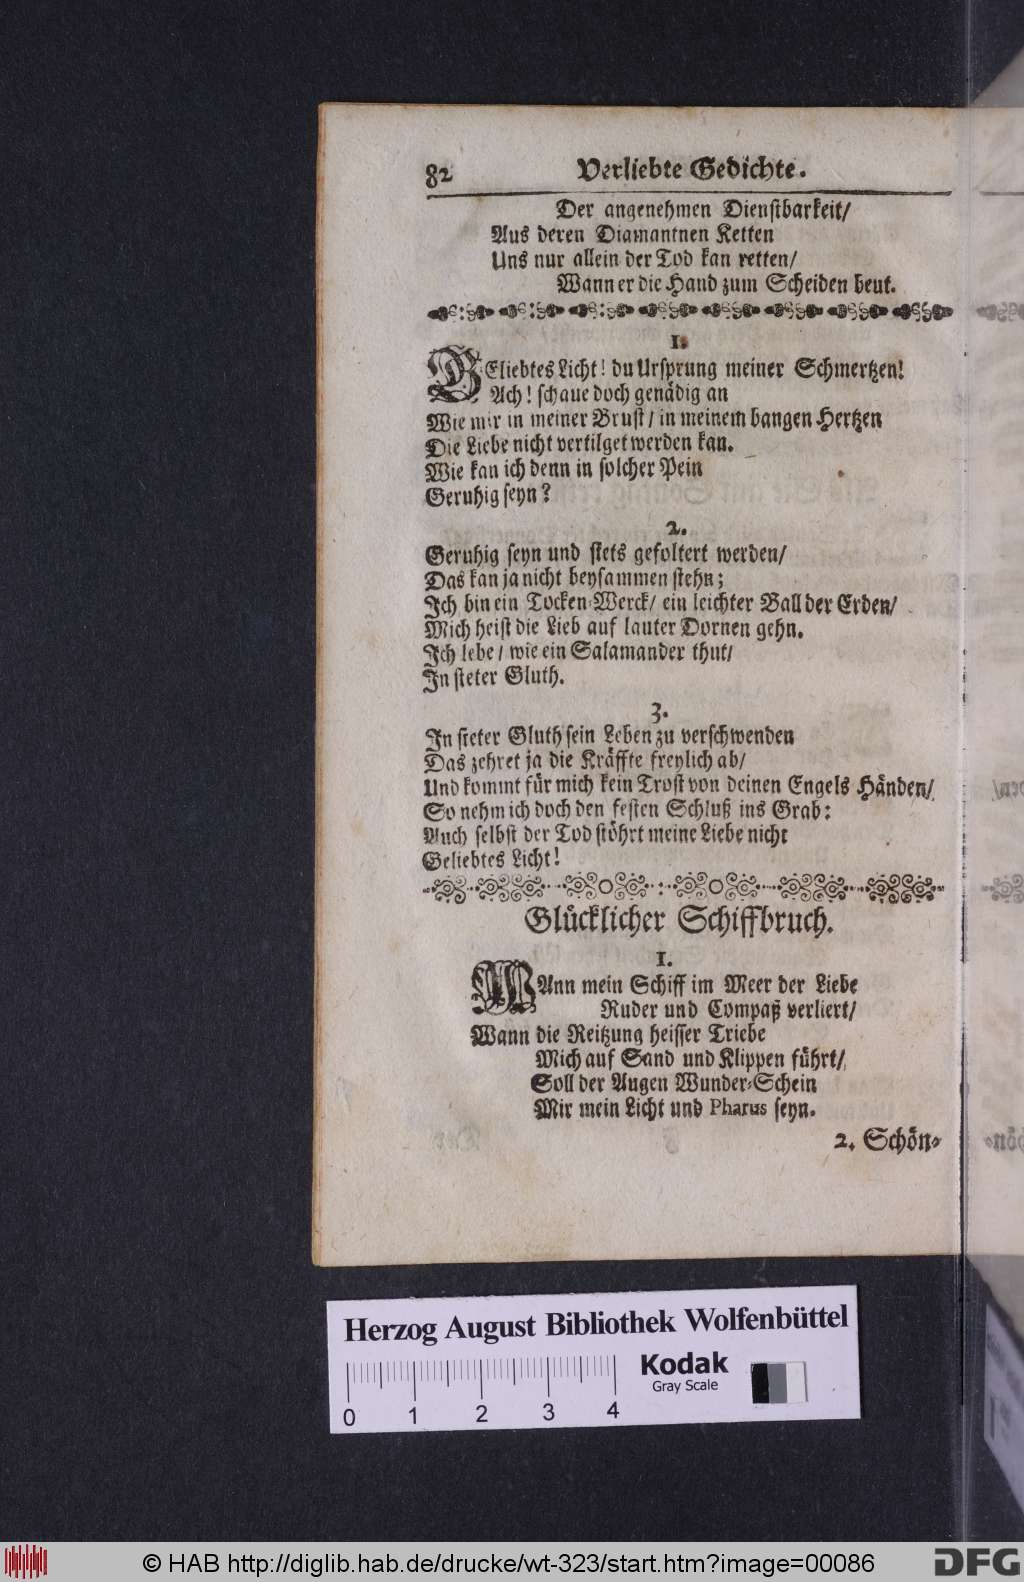 82 Verliebte Gedichte.
Der angenehmen Dienstbarkeit/
Aus deren Diamantnen Ketten
Uns nur allein der Tod kan retten/
Wann er die Hand zum Scheiden beut.
1.
GEliebtes Licht! du Ursprung meiner Schmertzen!
Ach! schaue doch genädig an
Wie mir in meiner Brust/ in meinem bangen Hertzen
Die Liebe nicht vertilget werden kan.
Wie kan ich denn in solcher Pein
Geruhig seyn?
2.
Geruhig seyn und stets gefoltert werden/
Das kan ja nicht beysammen stehn;
Ich bin ein Tocken-Werck/ ein leichter Ball der Erden/
Mich heist die Lieb auf lauter Dornen gehn.
Ich lebe/ wie ein Salamander thut/
In steter Gluth.
3.
In steter Gluth sein Leben zu verschwenden
Das zehret ja die Kräffte freylich ab/
Und kommt für mich kein Trost von deinen Engels Händen/
So nehm ich doch den festen Schluß ins Grab:
Auch selbst der Tod stöhrt meine Liebe nicht
Geliebtes Licht!
Glücklicher Schiffbruch.
1.
WAnn mein Schiff im Meer der Liebe
Ruder und Compaß verliert/
Wann die Reitzung heisser Triebe
Mich auf Sand und Klippen führt/
Soll der Augen Wunder-Schein
Mir mein Licht und Pharus seyn.
2. Schön-
Herzog August Bibliothek Wolfenbüttel
Kodak
Gray Scale
0 1 2 3 4
© HAB http://diglib.hab.de/drucke/wt-323/start.htm?image=00086
DFG